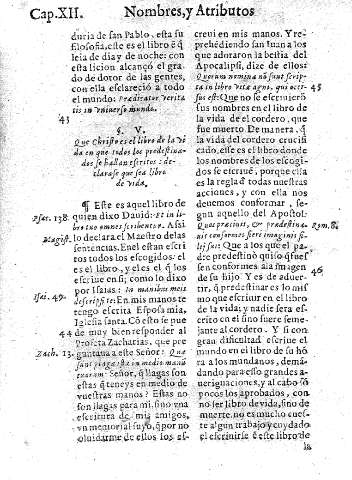 Cap.XII. Nombres, y Atributos
duria de san Pablo, esta su
filosofia, este es el libro q̃ el
leia de dia y de noche: con
esta licion alcançó el gra-
do de dotor de las gentes,
con ella esclareció a todo
el mundo: Prædicator verita
tis in vniuerso mundo.
43
§. V.
Que Christo es el libro de la vi
da en que todos los predestina-
dos se hallan escritos: de-
clarase que sea libro
de vida.
¶ Este es aquel libro de
Psal. 138. quien dixo Dauid: Et in li-
bro tuo omnes scribentur. Assi
Magist. lo declara el Maestro de las
sentencias. En el estan escri
tos todos los escogidos: el
es el libro, y el es el q̃ los
escriue en si; como lo dixo
por Isaias: In manibus meis
Isai. 49. descripsi te: En mis manos te
tengo escrita Esposa mia,
Iglesia santa. Cõ esto se pue
44 de muy bien responder al
Profeta Zacharias, que pre
Zach. 13. guntaua a este Señor: Quæ
sunt plagæ istæ in medio manũ
tuarum? Señor, q̃ llagas son
estas q̃ teneys en medio de
vuestras manos? Estas no
son llagas para mi, sino vna
escritura de mis amigos,
vn memorial suyo, q̃ por no
oluidarme de ellos los es-
creui en mis manos. Y re-
prehẽdiendo san Iuan a los
que adoraron la bestia del
Apocalipsi, dize de ellos:
Quorum nomina nõ sunt scrip-
ta in libro vitæ agni, qui occi- 45
sus est: Que no se escriuierõ
sus nombres en el libro de
la vida del cordero, que
fue muerto. De manera, q̃
la vida del cordero cruci-
ficado, esse es el libro donde
los nombres de los escogi-
dos se escriuẽ, porque ella
es la regla d̃ todas nuestras
acciones, y con ella nos
deuemos conformar, se-
gun aquello del Apostol:
Quos præsciuit, & prædestina- Rom. 8.
uit conformes fieri imaginis fi-
lij sui: Que a los que el pa-
dre predestinò quiso q̃ fues
sen conformes a la imagen
de su hijo. Y es de aduer- 46
tir, q̃ predestinar es lo mis
mo que escriuir en el libro
de la vida; y nadie serà es-
crito en el sino fuere seme-
jante al cordero. Y si con
gran dificultad escriue el
mundo en el libro de su hõ
ra a los mundanos, deman-
dando para esso grandes a-
ueriguaciones, y al cabo sõ
pocos los aprobados, con
no ser libro de vida, sino de
muerte, no es mucho cues-
te algun trabajo y cuydado
el escriuirse ẽ este libro de
la